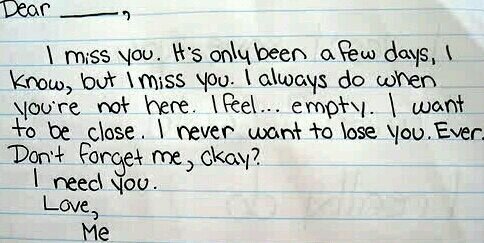 Dear ______,
I miss you. It's only been a few days, I
know, but I miss you. I always do when
you're not here. I feel... empty. I want
to be close. I never want to lose you. Ever.
Don't forget me, okay?
I need you.
Love,
Me